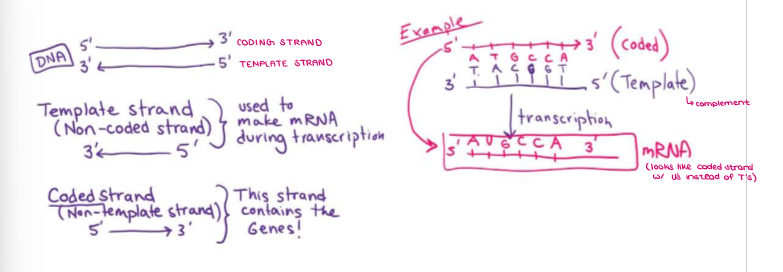 DNA
5' 3' CODING STRAND
3' 5' TEMPLATE STRAND
Template strand
(Non-coded strand)
3' 5'
used to
make mRNA
during transcription
Coded Strand
(Non-template strand)
5' 3'
This strand
contains the
Genes!
Example
5' 3' (Coded)
A T G C C A
T A C G G T
3' 5' (Template)
complement
transcription
5' A U G C C A 3'
mRNA
(looks like coded strand
w/ U's instead of T's)